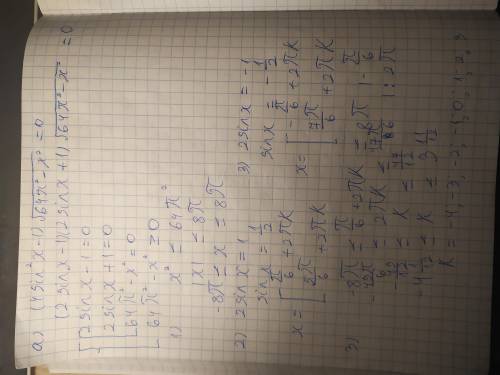 a) (4sin²x-1)√64π²-x² = 0
(2sinx-1)(2sinx+1)√64π²-x² = 0
2sinx-1=0
2sinx+1=0
64π²-x²=0
64π²-x²≥0
1) x² ≤ 64π²
|x| ≤ 8π
-8π ≤ x ≤ 8π
2) 2sinx=1
sinx = 1/2
x = [ π/6 + 2πk
5π/6 + 2πk
3) 2sinx = -1
sinx = -1/2
x = [ -π/6 + 2πk
7π/6 + 2πk
3) -8π ≤ π/6 + 2πk ≤ 8π |-π/6
-49π/6 ≤ 2πk ≤ 47π/6 |: 2π
-49/12 ≤ k ≤ 47/12
-4 1/12 ≤ k ≤ 3 11/12
k = -4, -3, -2, -1, 0, 1, 2, 3